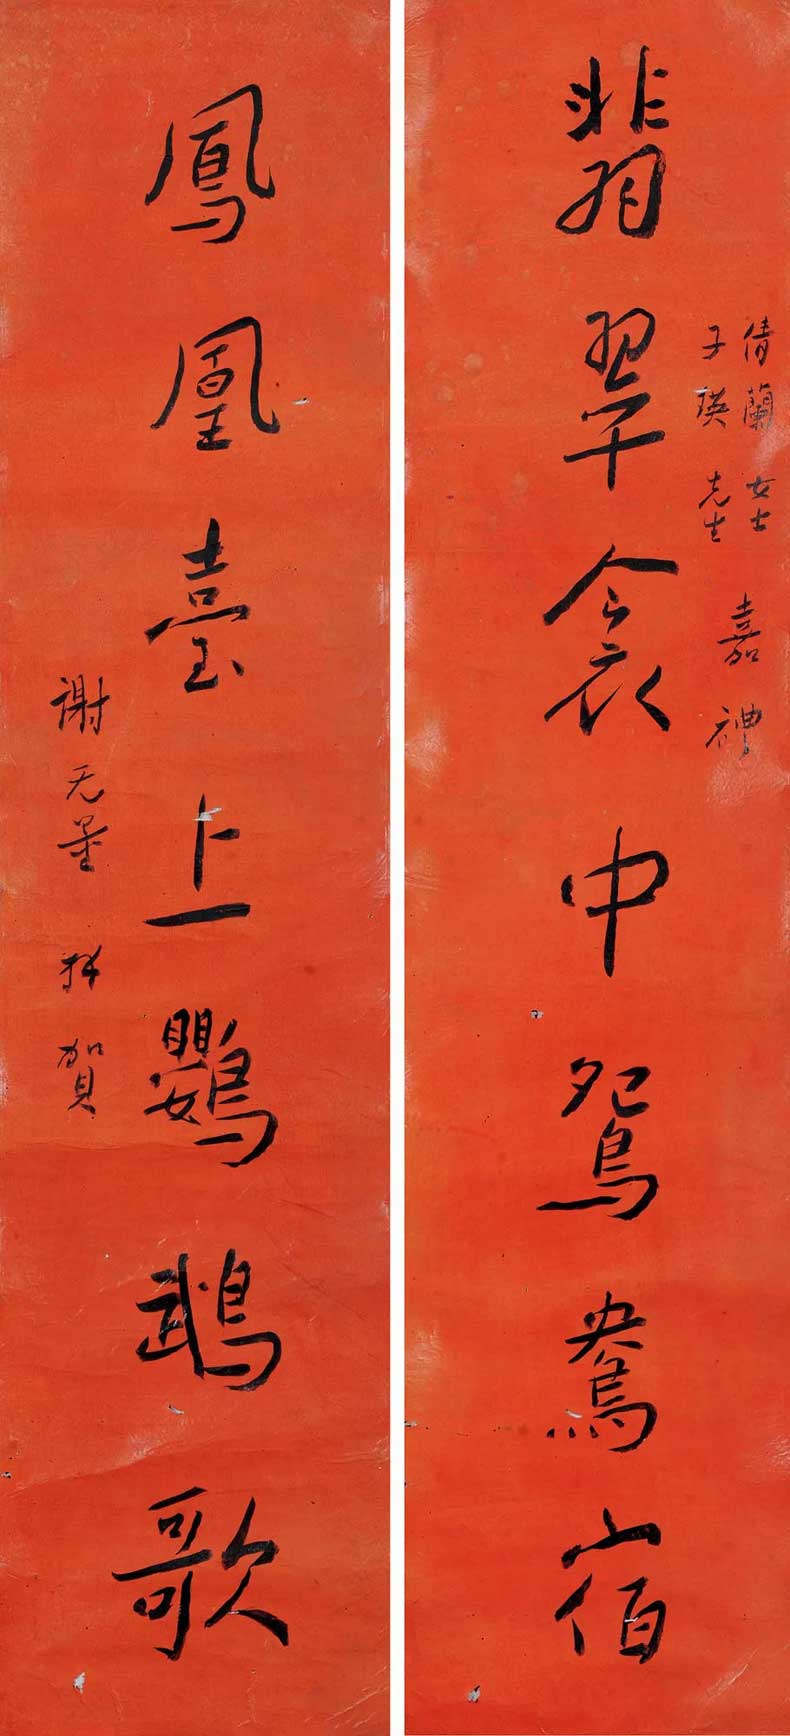 倩蘭女士
子瑛先生
嘉禮
翡翠衾中鴛鴦宿
鳳凰臺上鸚鵡歌
謝无量拜賀